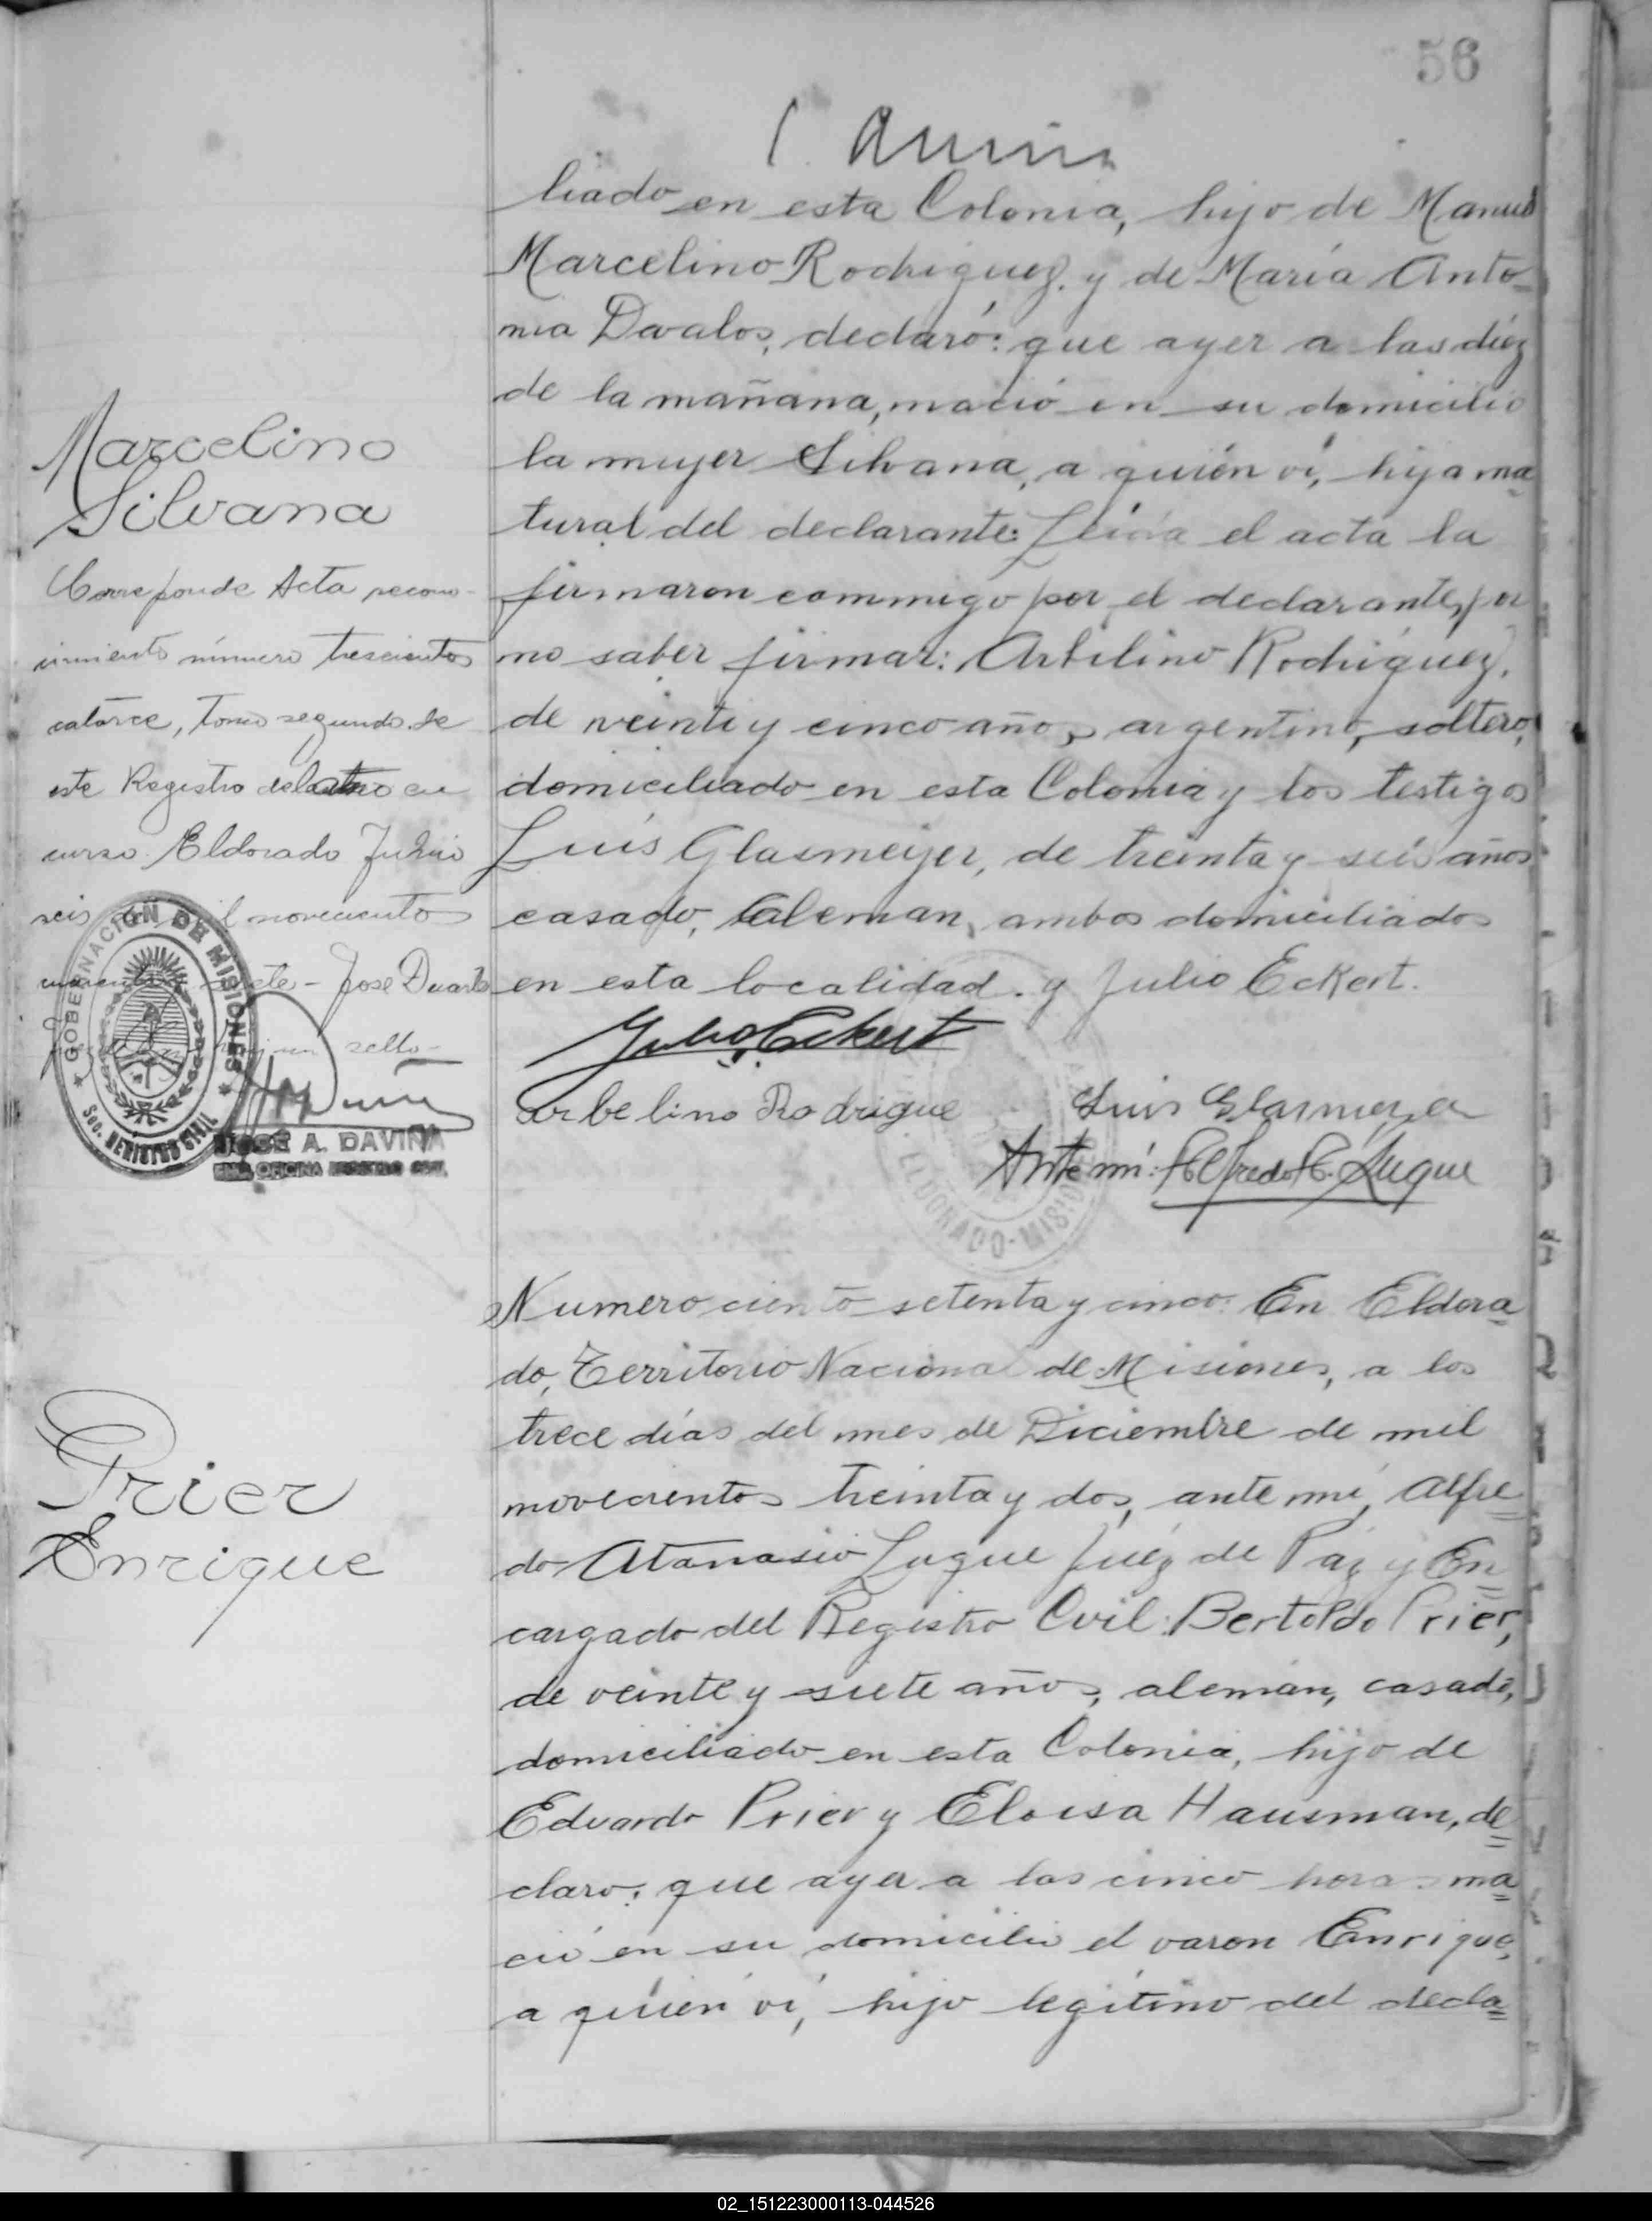 56
liado en esta Colonia, hijo de Manuel
Marcelino Rodriguez. y de María Anto-
nia Davalos, declaró: que ayer a las diéz
de la mañana, nació en su domicilio
la mujer Silvana, a quién ví, hija na
tural del declarante: Leída el acta la
firmaron conmigo por el declarante, por
no saber firmar: Arbilino Rodriguez,
de veinti y cinco años, argentino, soltero,
domiciliado en esta Colonia y los testigos
Luís Glasmeyer, de treinta y seis años
casado, aleman, ambos domiciliados
en esta localidad. y Julio Eckert.
Julio Eckert
arbelino Rodrigue
Luis Glasmeyer
Ante mi: Alfredo A. Luque
ELDORADO-MISIONES
Marcelino
Silvana
Corresponde Acta recono-
cimiento número trescientos
catorce, Tomo segundo de
este Registro del en
curso. Eldorado Junio
seis novecientos
cuarenta siete - José Duarte
sello -
GOBERNACIÓN DE MISIONES
Sec. REGISTRO CIVIL
JOSÉ A. DAVIÑA
OFICINA REGISTRO CIVIL
Numero ciento setenta y cinco: En Eldora
do, Territorio Nacional de Misiones, a los
trece días del mes de Diciembre de mil
novecientos treinta y dos, ante mí, Alfre
do Atanasio Luque Juéz de Páz y En
cargado del Registro Civil: Bertoldo Prier,
de veinte y siete años, alemán, casado,
domiciliado en esta Colonia, hijo de
Eduardo Prier y Eloisa Hausman, de
claro: que ayer a las cinco horas na
ció en su domicilio el varon Enrique,
a quién ví, hijo legítimo del decla
Prier
Enrique
02_151223000113-044526